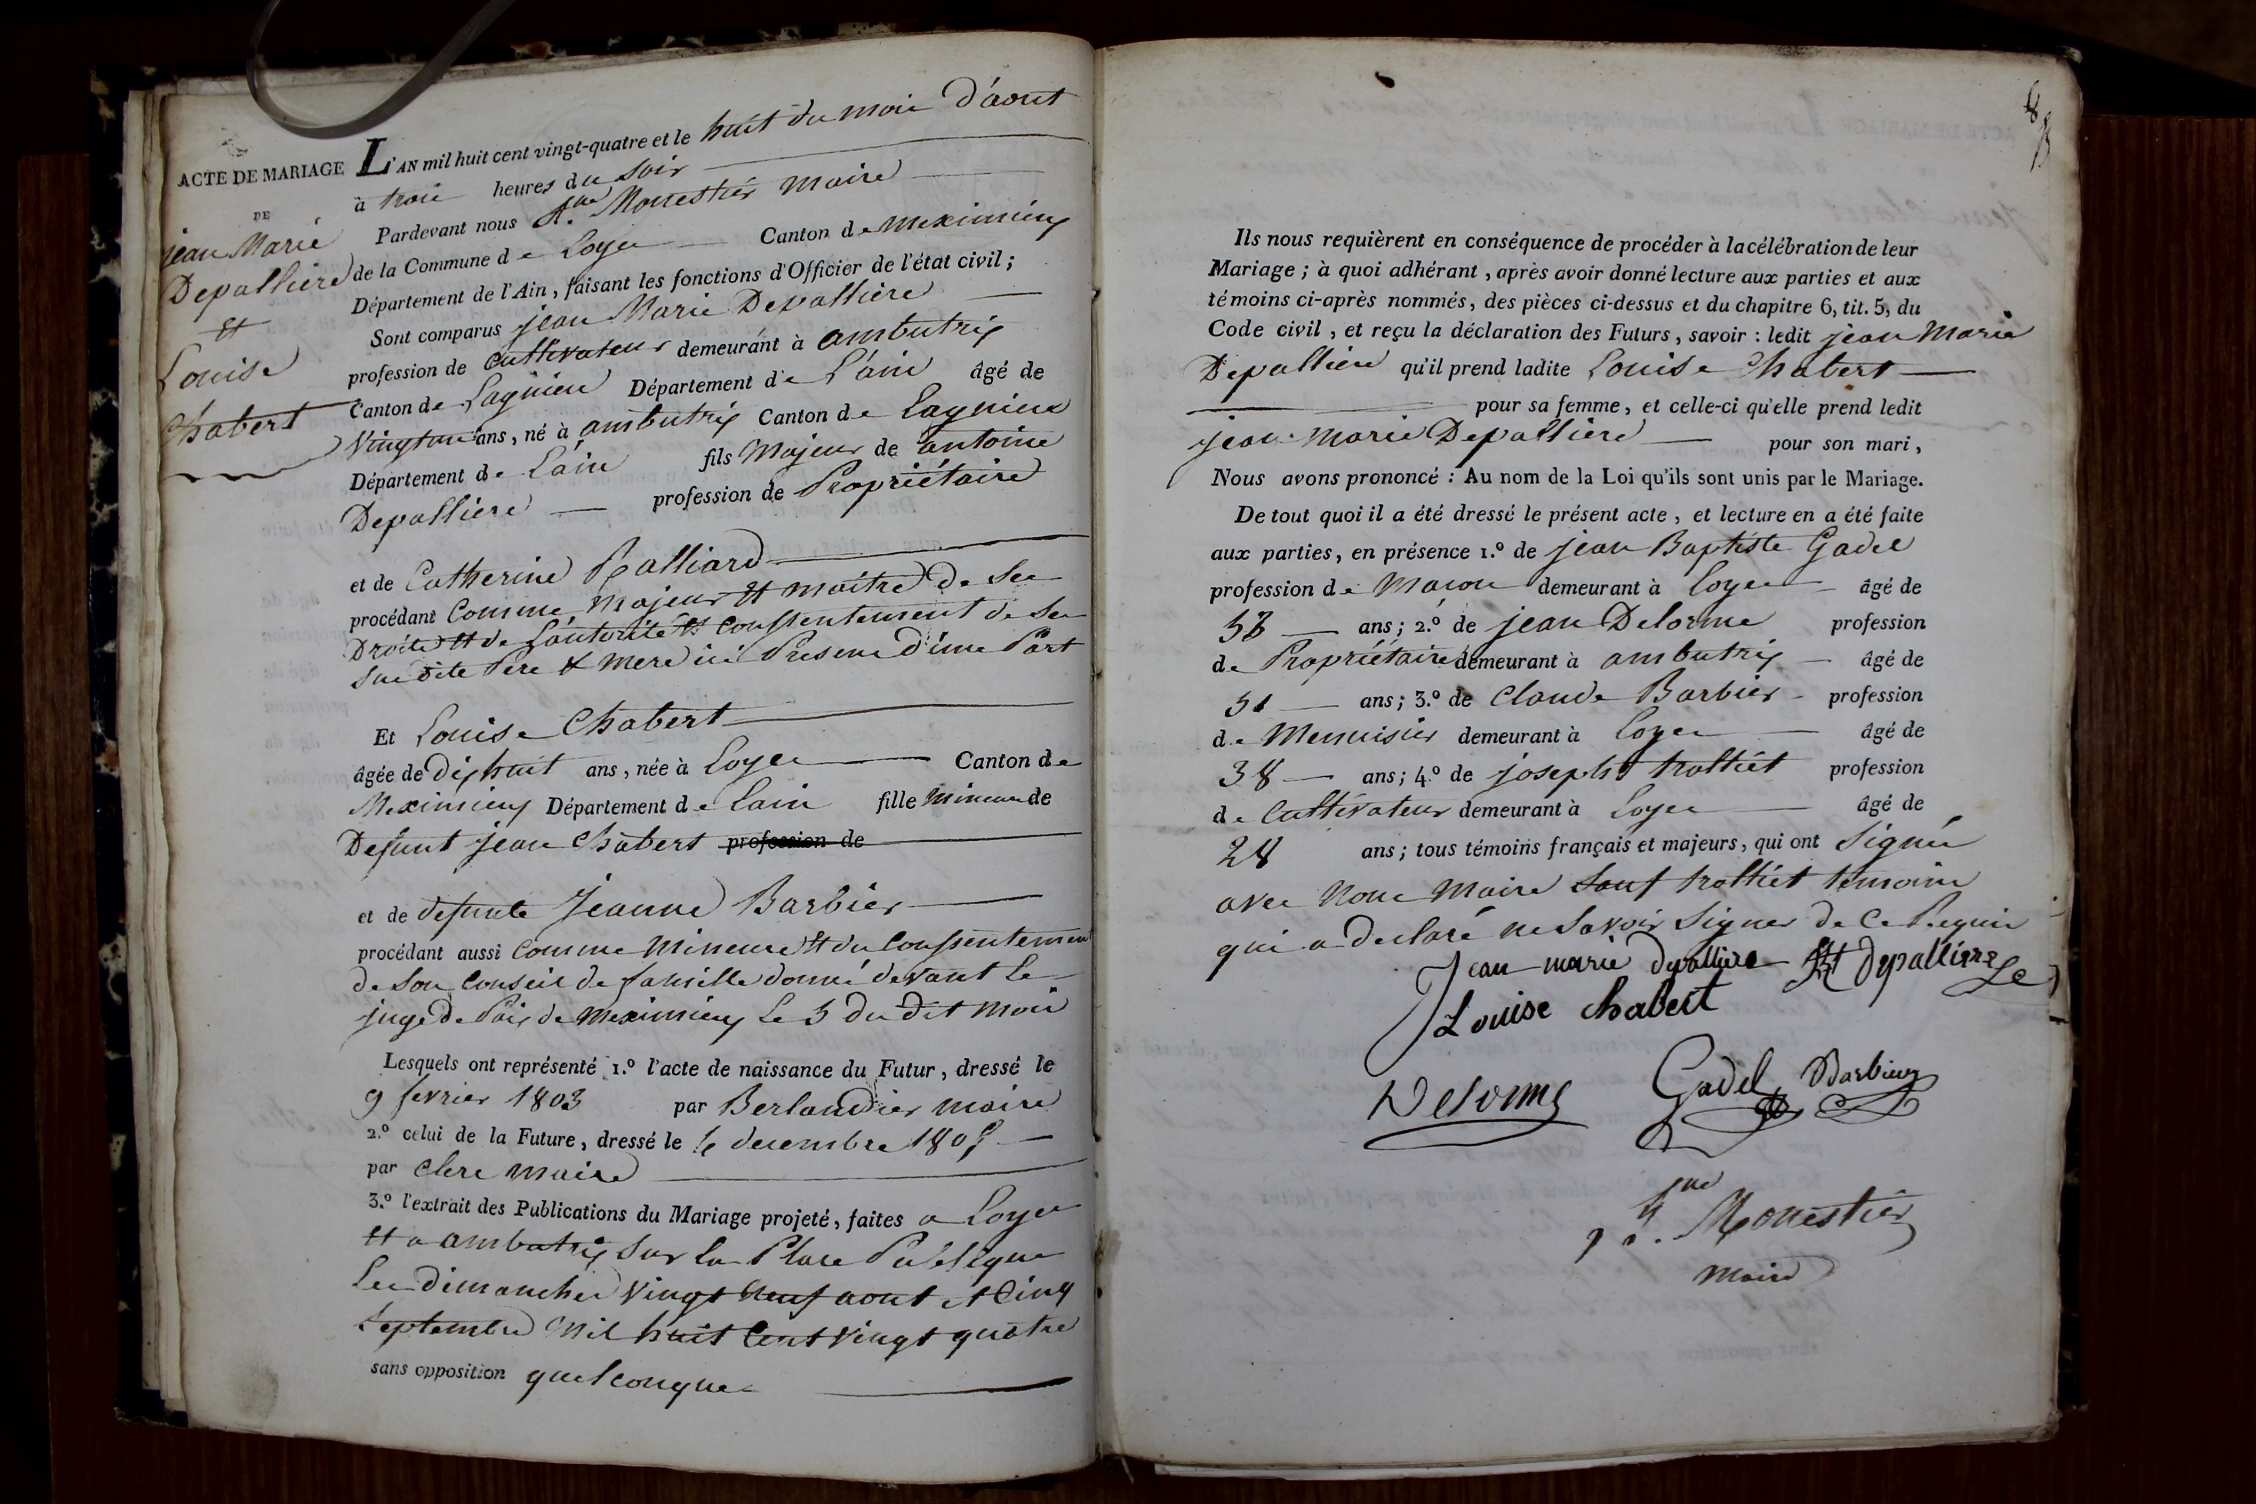 ACTE DE MARIAGE
DE
jean Marie
Depallière
et
Louise
Chabert
L'AN mil huit cent vingt-quatre et le huit du mois d'aout
à trois heures du soir
Pardevant nous Monestier maire
de la Commune de Loyes Canton de meximieux
Département de l'Ain, faisant les fonctions d'Officier de l'état civil;
Sont comparus jean Marie Depallière
profession de Cultivateur demeurant à ambutrix
Canton de Lagnieu Département de l'ain âgé de
Vingt un ans, né à ambutrix Canton de Lagnieux
Département de L'ain fils Majeur de antoine
Depallière profession de Propriétaire
et de Catherine Ralliard
procédant Comme Majeur et maitre de ses
Droits et de l'autorité et Consentement de ses
Susdits Père & Mere ici Presens d'une Part
Et Louise Chabert
âgée de dixhuit ans, née à Loyes Canton de
Meximieux Département de Lain fille Mineure de
Defunt jean Chabert profession de
et de defunte Jeanne Barbier
procédant aussi Comme Mineure et du Consentement
de Son Conseil de famille donné devant Le
juge de Paix de Meximieux Le 5 du dit mois
Lesquels ont représenté 1.º l'acte de naissance du Futur, dressé le
9 fevrier 1803 par Berlandier maire
2.º celui de la Future, dressé le 4 decembre 1805
par Clerc maire
3.º l'extrait des Publications du Mariage projeté, faites a Loyes
et a ambutrix Sur la Place Publique
Les dimanches Vingt Neuf aout et Cinq
Septembre Mil huit Cent Vingt quatre
sans opposition quelconque
8
Ils nous requièrent en conséquence de procéder à la célébration de leur
Mariage; à quoi adhérant, après avoir donné lecture aux parties et aux
témoins ci-après nommés, des pièces ci-dessus et du chapitre 6, tit. 5, du
Code civil, et reçu la déclaration des Futurs, savoir: ledit jean Marie
Depallière qu'il prend ladite Louise Chabert
pour sa femme, et celle-ci qu'elle prend ledit
jean Marie Depallière pour son mari,
Nous avons prononcé: Au nom de la Loi qu'ils sont unis par le Mariage.
De tout quoi il a été dressé le présent acte, et lecture en a été faite
aux parties, en présence 1.º de jean Baptiste Gadel
profession de Macon demeurant à Loyes âgé de
ans; 2.º de jean Delorme profession
de Propriétaire demeurant à ambutrix âgé de
51 ans; 3.º de Claude Barbier profession
de Menuisier demeurant à Loyes âgé de
38 ans; 4.º de joseph trolliet profession
de Cultivateur demeurant à Loyes âgé de
28 ans; tous témoins français et majeurs, qui ont Signés
avec Nous Maire Sauf trolliet temoin
qui a declaré ne Savoir Signer de Ce Requis
Jean marie depallière depallière
Louise chabert
Delorme Gadel Barbier
Monestier
maire